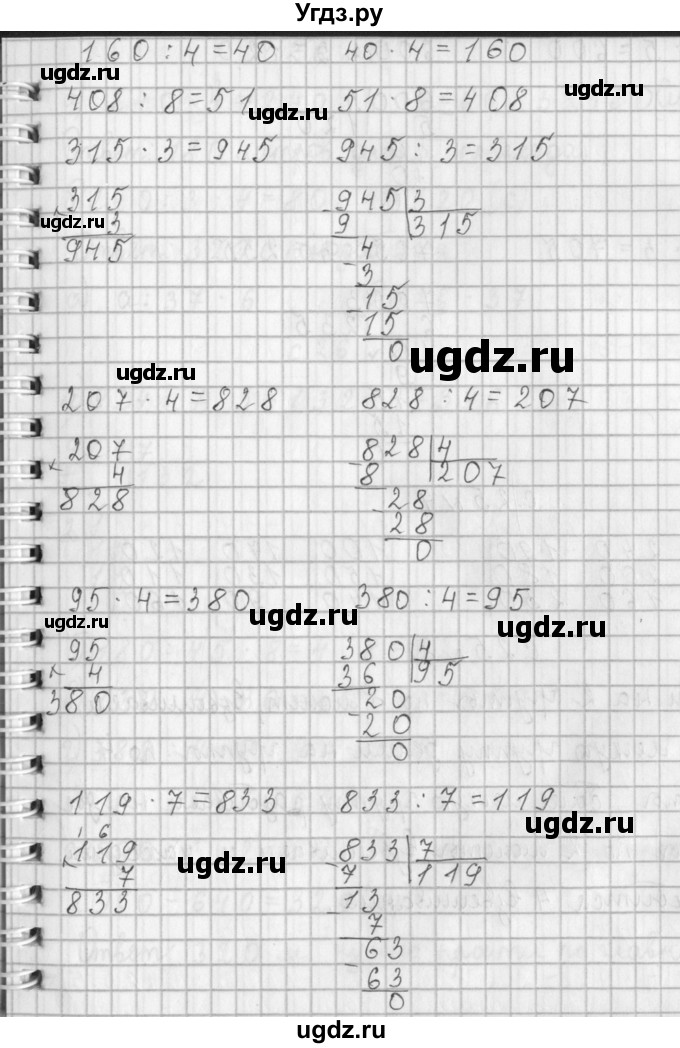 Угдз.ру
160 : 4 = 40    40 · 4 = 160
ugdz.ru    ugdz.ru
408 : 8 = 51    51 · 8 = 408
ugdz.ru
315 · 3 = 945    945 : 3 = 315
315    945 | 3
× 3    - 9    315
ugdz.ru
945    4
- 3
15
- 15
0
ugdz.ru
ugdz.ru
207 · 4 = 828    828 : 4 = 207
207    828 | 4
× 4    - 8    207
828    28
- 28
0
95 · 4 = 380    380 : 4 = 95
ugdz.ru    ugdz.ru
ugdz.ru
95    380 | 4
× 4    36    95
380    20
- 20
0
119 · 7 = 833    833 : 7 = 119
ugdz.ru
1 6
119    833 | 7
× 7    - 7    119
ugdz.ru
833    13
7
63
- 63
0
ugdz.ru
ugdz.ru